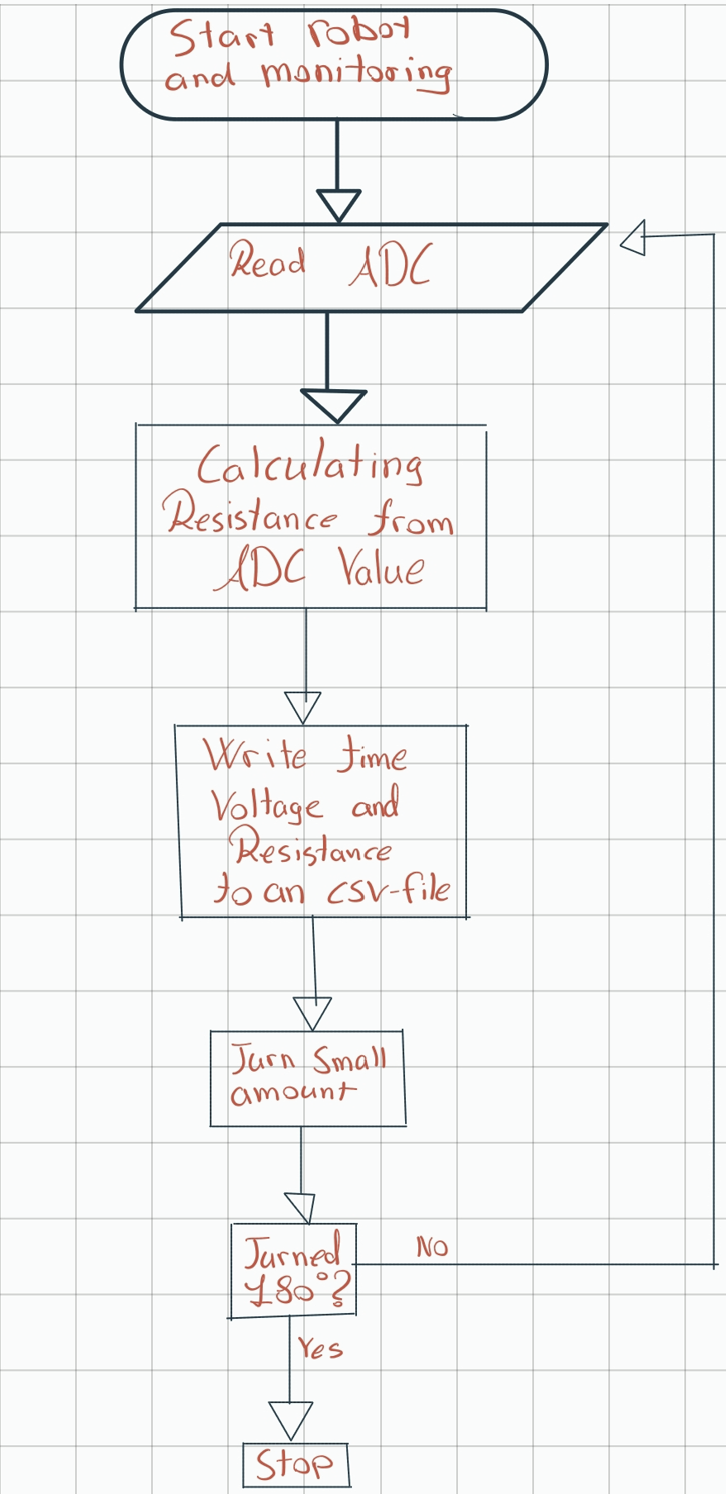 Start robot
and monitoring
Read ADC
Calculating
Resistance from
ADC Value
Write time
Voltage and
Resistance
to an csv-file
Turn Small
amount
Turned
180°?
NO
Yes
Stop